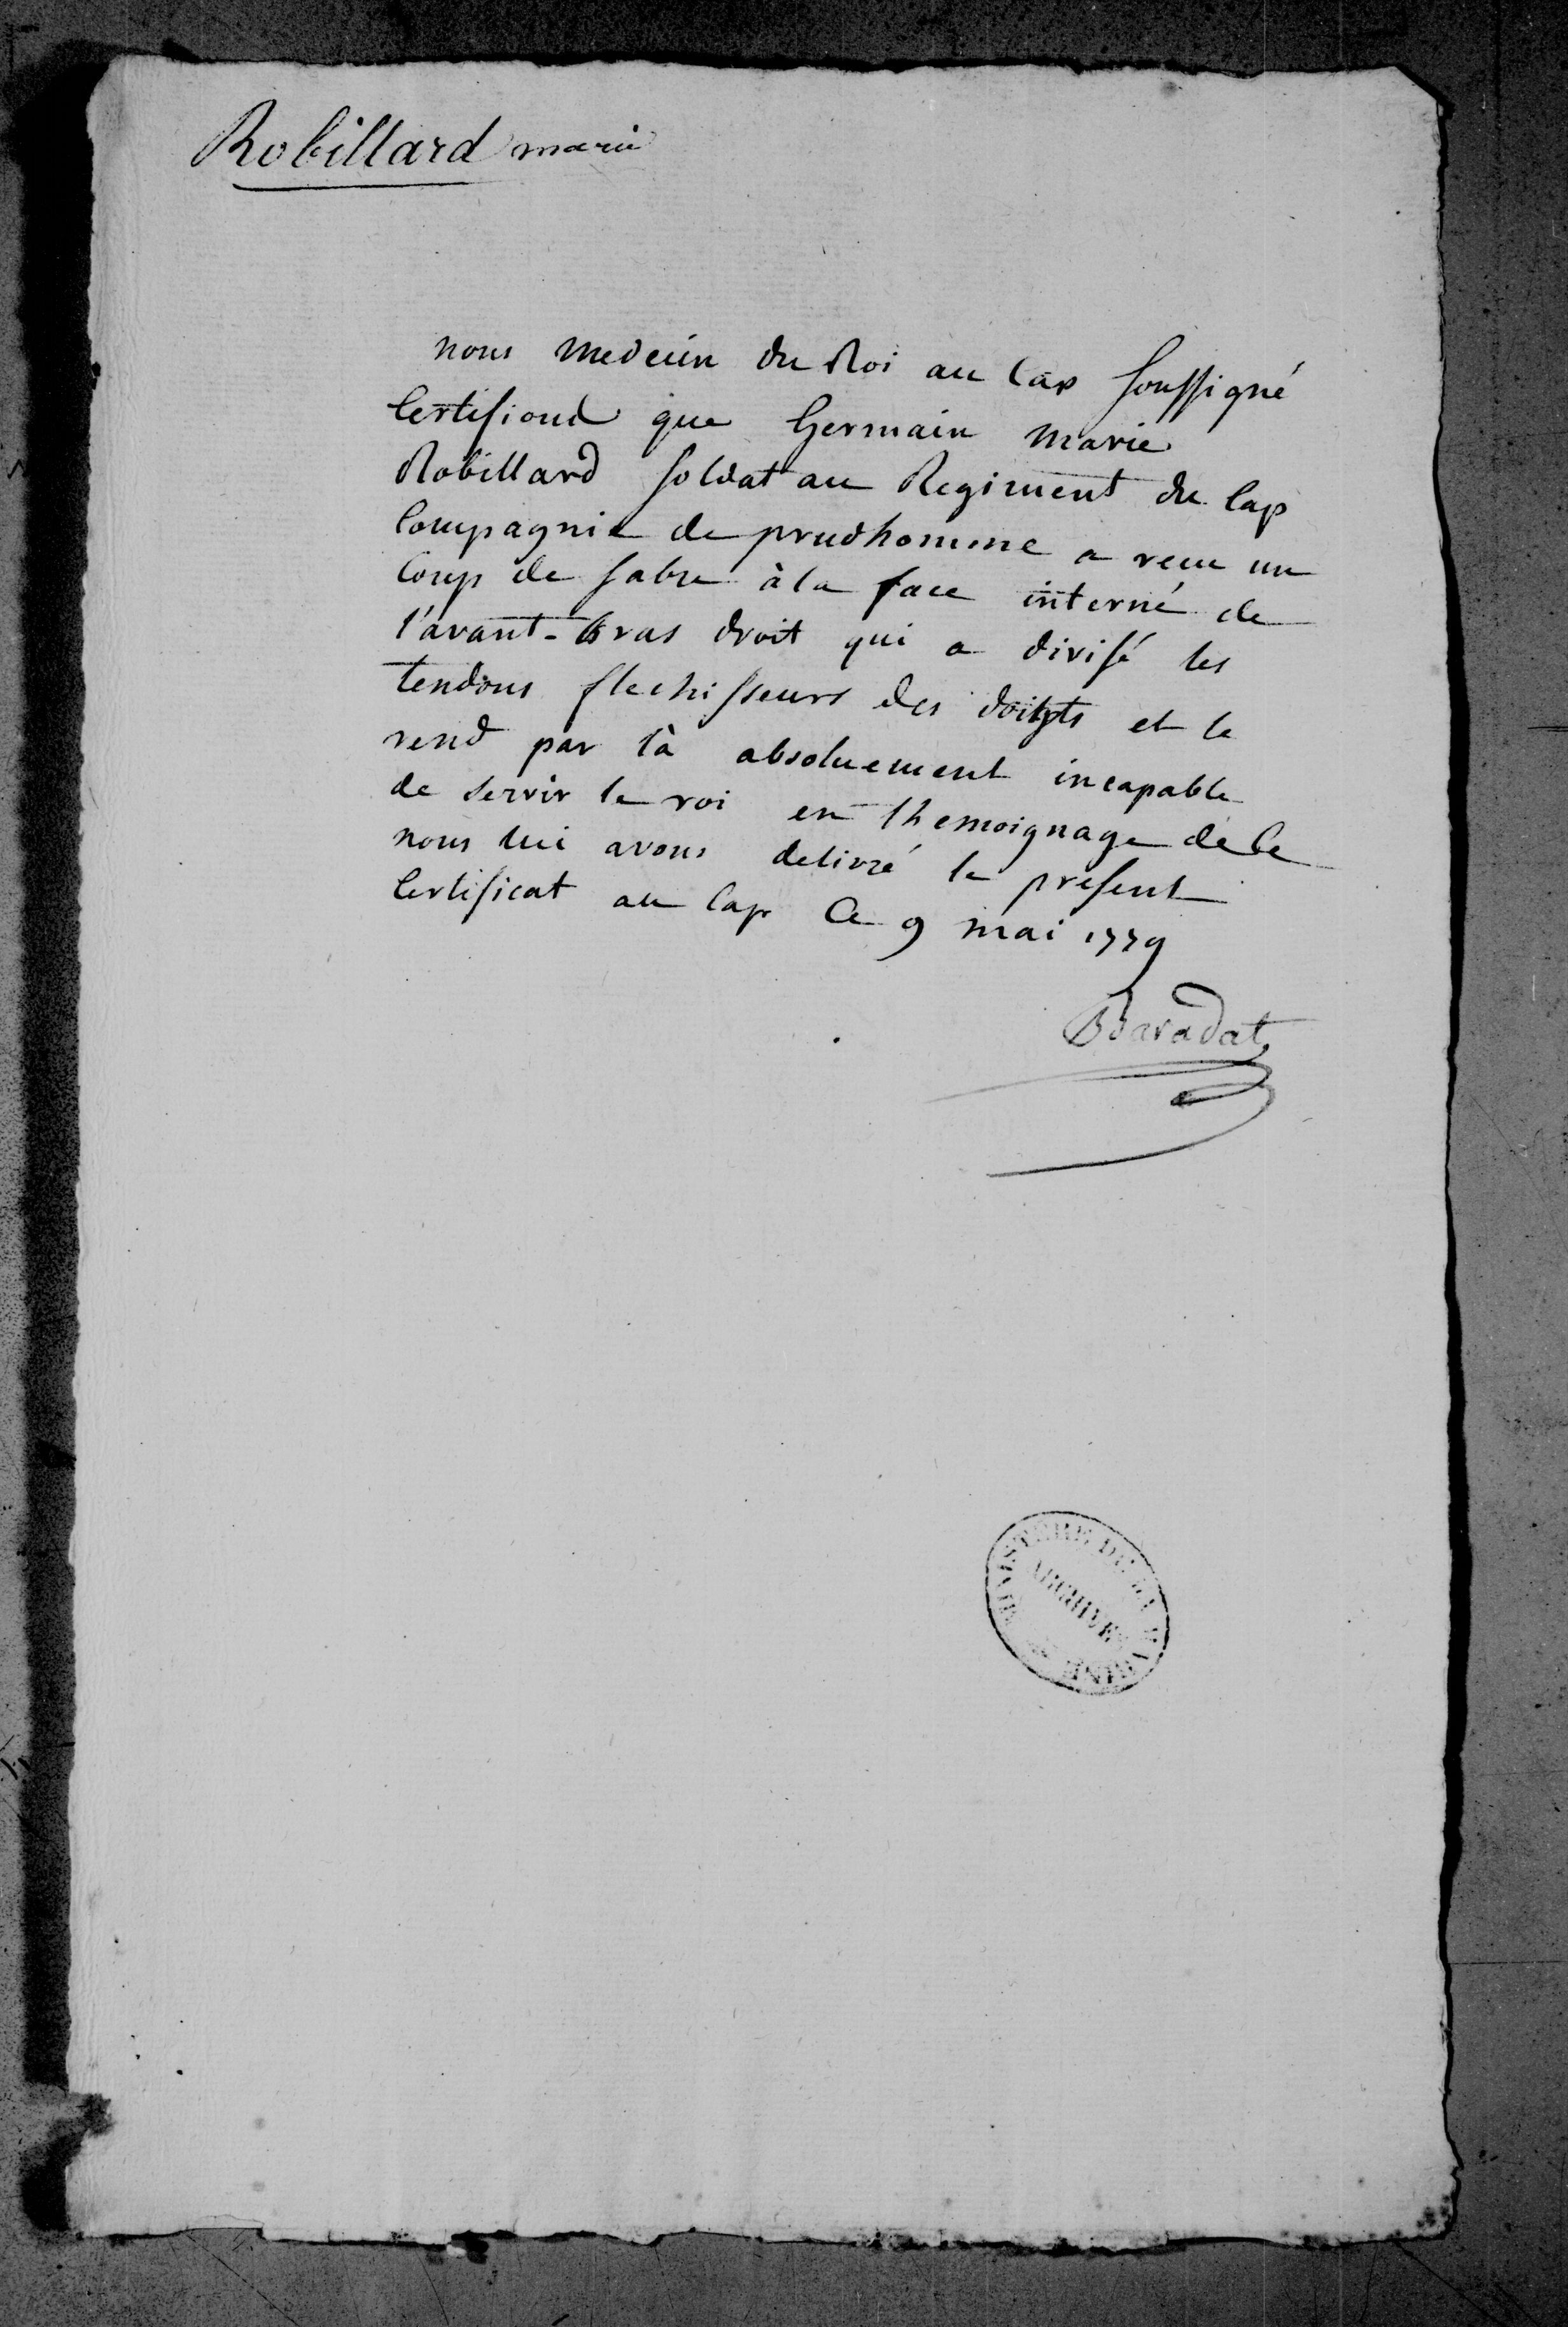 Robillard marie
nous medecin du Roi au Cap soussigné
Certifiond que Germain marie
Robillard soldat au Regiment du Cap
Compagnie de prudhomme a recu un
Coup de sabre à la face interne de
l'avant-Bras droit qui a divisé les
tendons flechisseurs des doitgts et le
rend par là absoluement incapable
de servir le roi en themoignage de Ce
nous lui avons delivré le present
Certificat au Cap Ce 9 mai 1779
Baradat
MINISTERE DE LA MARINE
ARCHIVES